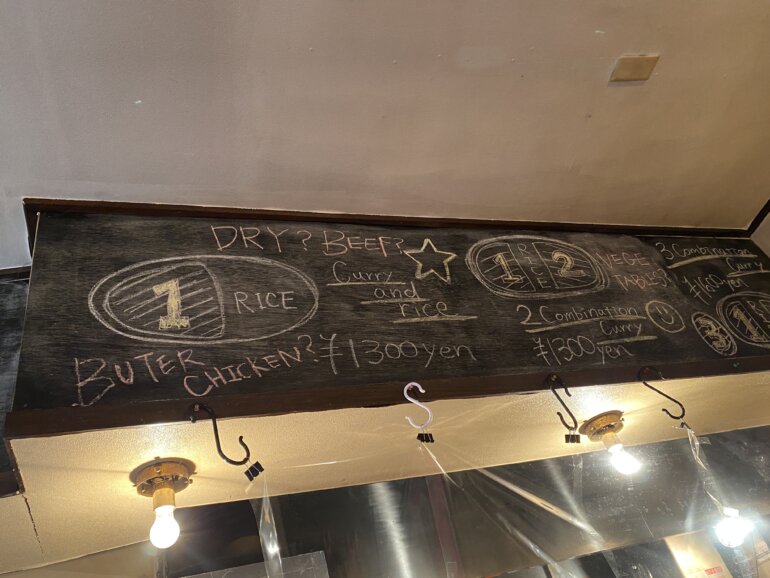 DRY? BEEF?
1 RICE
Curry
and
rice
BUTER
CHICKEN?
¥1300yen
1 RICE 2
VEGE
TABLES?
2 Combination
Curry
¥1300yen
3 Combination
Curry
¥1600yen
3 1